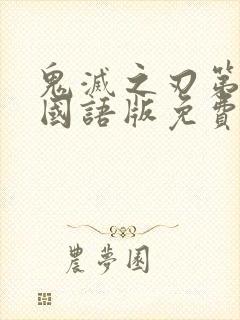 鬼滅之刃第
國語版免費
農夢園